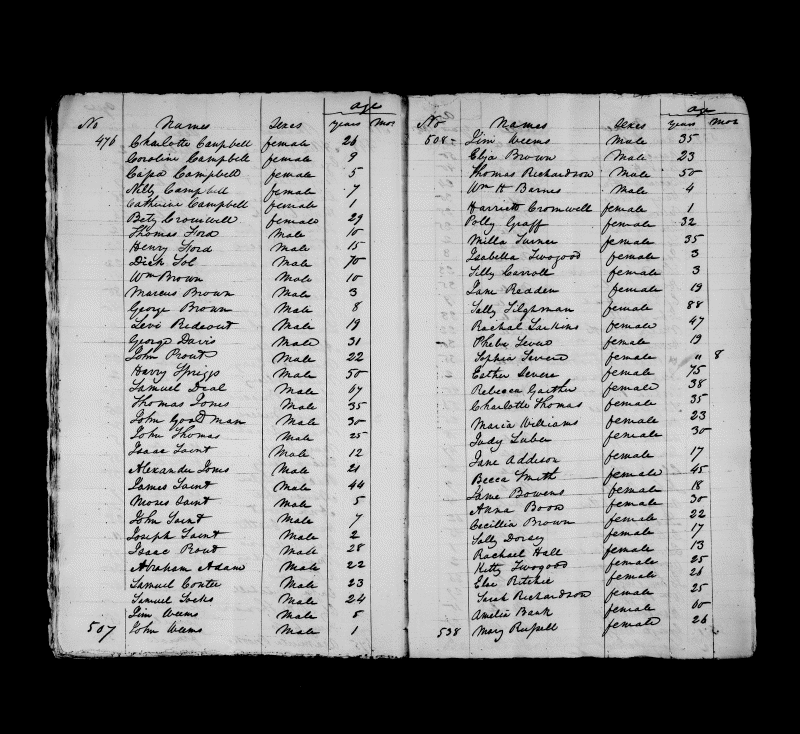 age
No Names Sexes years Mos
476 Charlotte Campbell female 26
Caroline Campbell female 9
Capa Campbell female 5
Nilly Campbell female 7
Catherine Campbell female 1
Bety Cromwell female 29
Thomas Ford Male 10
Henry Ford Male 15
Dick Sol Male 70
Wm Brown Male 10
Marcus Brown Male 3
George Brown Male 8
Levi Rideout Male 19
George Davis Male 31
John Prout Male 22
Harry Spriggs Male 50
Samuel Deal Male 67
Thomas Jones Male 35
John Goodman Male 30
John Thomas Male 25
Isaac Saint Male 12
Alexander Jones Male 21
James Saint Male 44
Moses Saint Male 5
John Saint Male 7
Joseph Saint Male 2
Isaac Prout Male 28
Abraham Adam Male 22
Samuel Contee Male 23
Samuel Socks Male 24
Jim Weems Male 5
507 John Weems Male 1
age
No Names Sexes years Mos
508 - Jim Weems Male 35
Elja Brown Male 23
Thomas Richardson Male 50
Wm H Barnes Male 4
Harriett Cromwell female 1
Polly Graff female 32
Milla Turner female 35
Isabella Twogood female 3
Silly Carroll female 3
Jane Readen female 19
Sally Tilghman female 88
Rachal Larkins female 47
Phebe Severe female 19
Sophia Severe female " 8
Esther Severe female 75
Rebecca Gaither female 38
Charlotte Thomas female 35
Maria Williams female 23
Judy Luber female 30
Jane Addison female 17
Becca Smith female 45
Jane Bowens female 18
Anna Boon female 30
Cecillia Brown female 22
Sally Dorsey female 17
Rachael Hall female 13
Kitty Twogood female 25
Elsie Ritchie female 26
Sarah Richardson female 25
Amelia Bank female 60
538 Mary Russell female 26